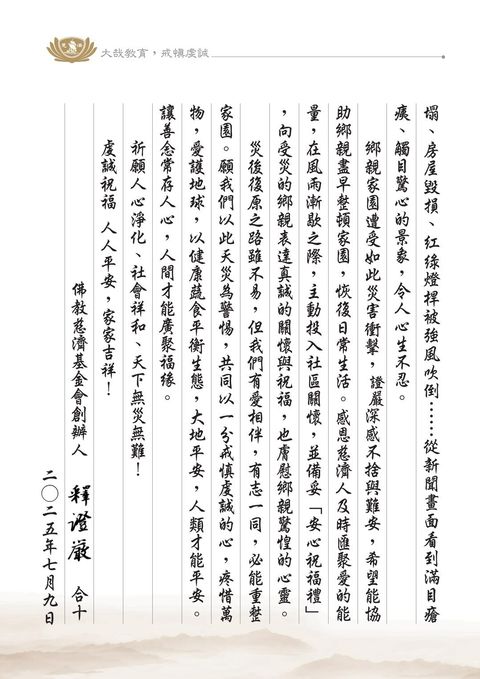 大哉教育，戒慎虔誠
塌、房屋毀損、紅綠燈桿被強風吹倒……從新聞畫面看到滿目瘡
痍、觸目驚心的景象，令人心生不忍。
鄉親家園遭受如此災害衝擊，證嚴深感不捨與難安，希望能協
助鄉親盡早整頓家園，恢復日常生活。感恩慈濟人及時匯聚愛的能
量，在風雨漸歇之際，主動投入社區關懷，並備妥「安心祝福禮」
，向受災的鄉親表達真誠的關懷與祝福，也膚慰鄉親驚惶的心靈。
災後復原之路雖不易，但我們有愛相伴，有志一同，必能重整
家園。願我們以此天災為警惕，共同以一分戒慎虔誠的心，疼惜萬
物，愛護地球，以健康蔬食平衡生態，大地平安，人類才能平安。
讓善念常存人心，人間才能廣聚福緣。
祈願人心淨化、社會祥和、天下無災無難！
虔誠祝福　人人平安，家家吉祥！
佛教慈濟基金會創辦人　釋證嚴　合十
二〇二五年七月九日